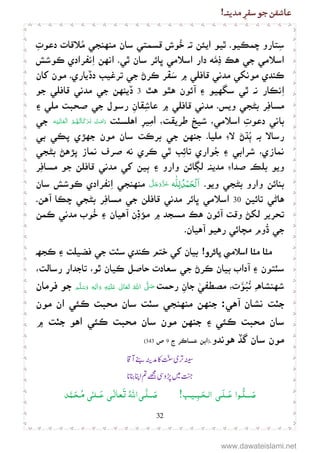 عاشقن جو سفرِ مدينه!
سِتارو چمڪيو. ٿيو ايئن تہ خُوش قسمتي سان منهنجي مُلاقات دعوتِ
اسلامي جي هڪ ذِمّہ دار اسلامي ڀائر سان ٿي. انهن اِنفرادي ڪوشش
ڪندي مونکي مدني قافلي ۾ سَفَر ڪرڻ جي ترغيب ڏياري. مون کان
اِنڪار نہ ٿي سگهيو ۽ آئون هٿو هٿ 3 ڏينهن جي مدني قافلي جو
مسافِر بڻجي ويس. مدني قافلي ۾ عاشقانِ رسول جي صحبت ملي ۽
باني دعوتِ اسلامي، شيخِ طريقت، اميرِ اهلسنّت جي
رسالا بہ پڙهڻ لاءِ مليا. جنهن جي برڪت سان مون جهڙي پڪي بي
نمازي، شرابي ۽ جواري تائِب ٿي ڪري نہ صرف نماز پڙهڻ بڻجي
ويو بلڪہ صداءِ مدينہ لڳائڻ وارو ۽ ٻين کي مدني قافلن جو مسافِر
بنائڻ وارو بڻجي ويو. اَلْحَمْدُلِلّٰه عَزَّوَجَلَّ منهنجي اِنفرادي ڪوشش سان
هاڻي تائين 30 اسلامي ڀائر مدني قافلن جي مسافر بڻجي چڪا آهن.
تحرير لکڻ وقت آئون هڪ مسجد ۾ مؤذِّن آهيان ۽ خوب مدني ڪمن
جي ڌُوم مچائي رهيو آهيان.
مٺا مٺا اسلامي ڀائرو! بيان کي ختم ڪندي سنّت جي فضيلت ۽ ڪجهہ
سنّتون ۽ آداب بيان ڪرڻ جي سعادت حاصل ڪيان ٿو، تاجدارِ رسالت،
شهنشاهِ نُبُوَّت، مصطفيٰ جانِ رحمت صَلَّی اللهُ تَعَالٰی عَلَیْهِ وَاٰلِهٖ وَسَلَّم جو فرمانِ
جنّت نشان آهي: جنهن منهنجي سنّت سان محبت ڪئي اُن مون
سان محبت ڪئي ۽ جنهن مون سان محبت ڪئي اهو جنّت ۾
مون سان گڏ هوندو. (ابنِ عساڪر ج 9 ص 343)
سینہ تری سنّت کا مدینہ بنے آقا
جنّت میں پڑوسی مجھے تم اپنا بنانا
صَلُّوا عَلَی الْحَبِیْب! صَلَّی اللهُ تَعَالٰی عَلٰی مُحَمَّد
32
www.dawateislami.net